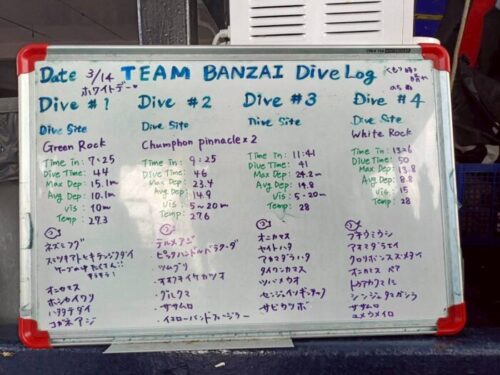 Date 3/14 TEAM BANZAI Dive Log
ホワイトデー
くもり時々晴れ
Dive #1
Dive Site
Green Rock
Time in: 7:25
Dive Time: 44
Max Dep: 15.1m
Avg Dep: 10.1m
Vis: 10m
Temp: 27.3
ネズミフグ
オニカマス
ホシカイワリ
ハナタテダイ
コガネアジ
Dive #2
Dive Site
Chumphon pinnacle x 2
Time in: 9:25
Dive Time: 46
Max Dep: 23.4
Avg Dep: 14.9
Vis: 5~20m
Temp: 27.6
テルメアジ
ピックハンドルバラクーダ
ツムブリ
オオクチイケカツオ
グルクマ
ササムロ
イエローバンドフュージラー
Dive #3
Dive Site
Time in: 11:41
Dive Time: 41
Max Dep: 24.2m
Avg Dep: 14.8
Vis: 5~20m
Temp: 28
オニカマス
セイトハタ
アカマダラハタ
タイワンカマス
ツバメウオ
センジュイソギンチャク
サビウツボ
Dive #4
Dive Site
White Rock
Time in: 13:26
Dive Time: 50
Max Dep: 13.8
Avg Dep: 8.8
Vis: 15
Temp: 28
フチウミウシ
アオマダラエイ
クロリボンスズメダイ
オニカマス ペア
トウアカクマノミ
シンジュタマガシラ
ササムロ
ユメウメイロ